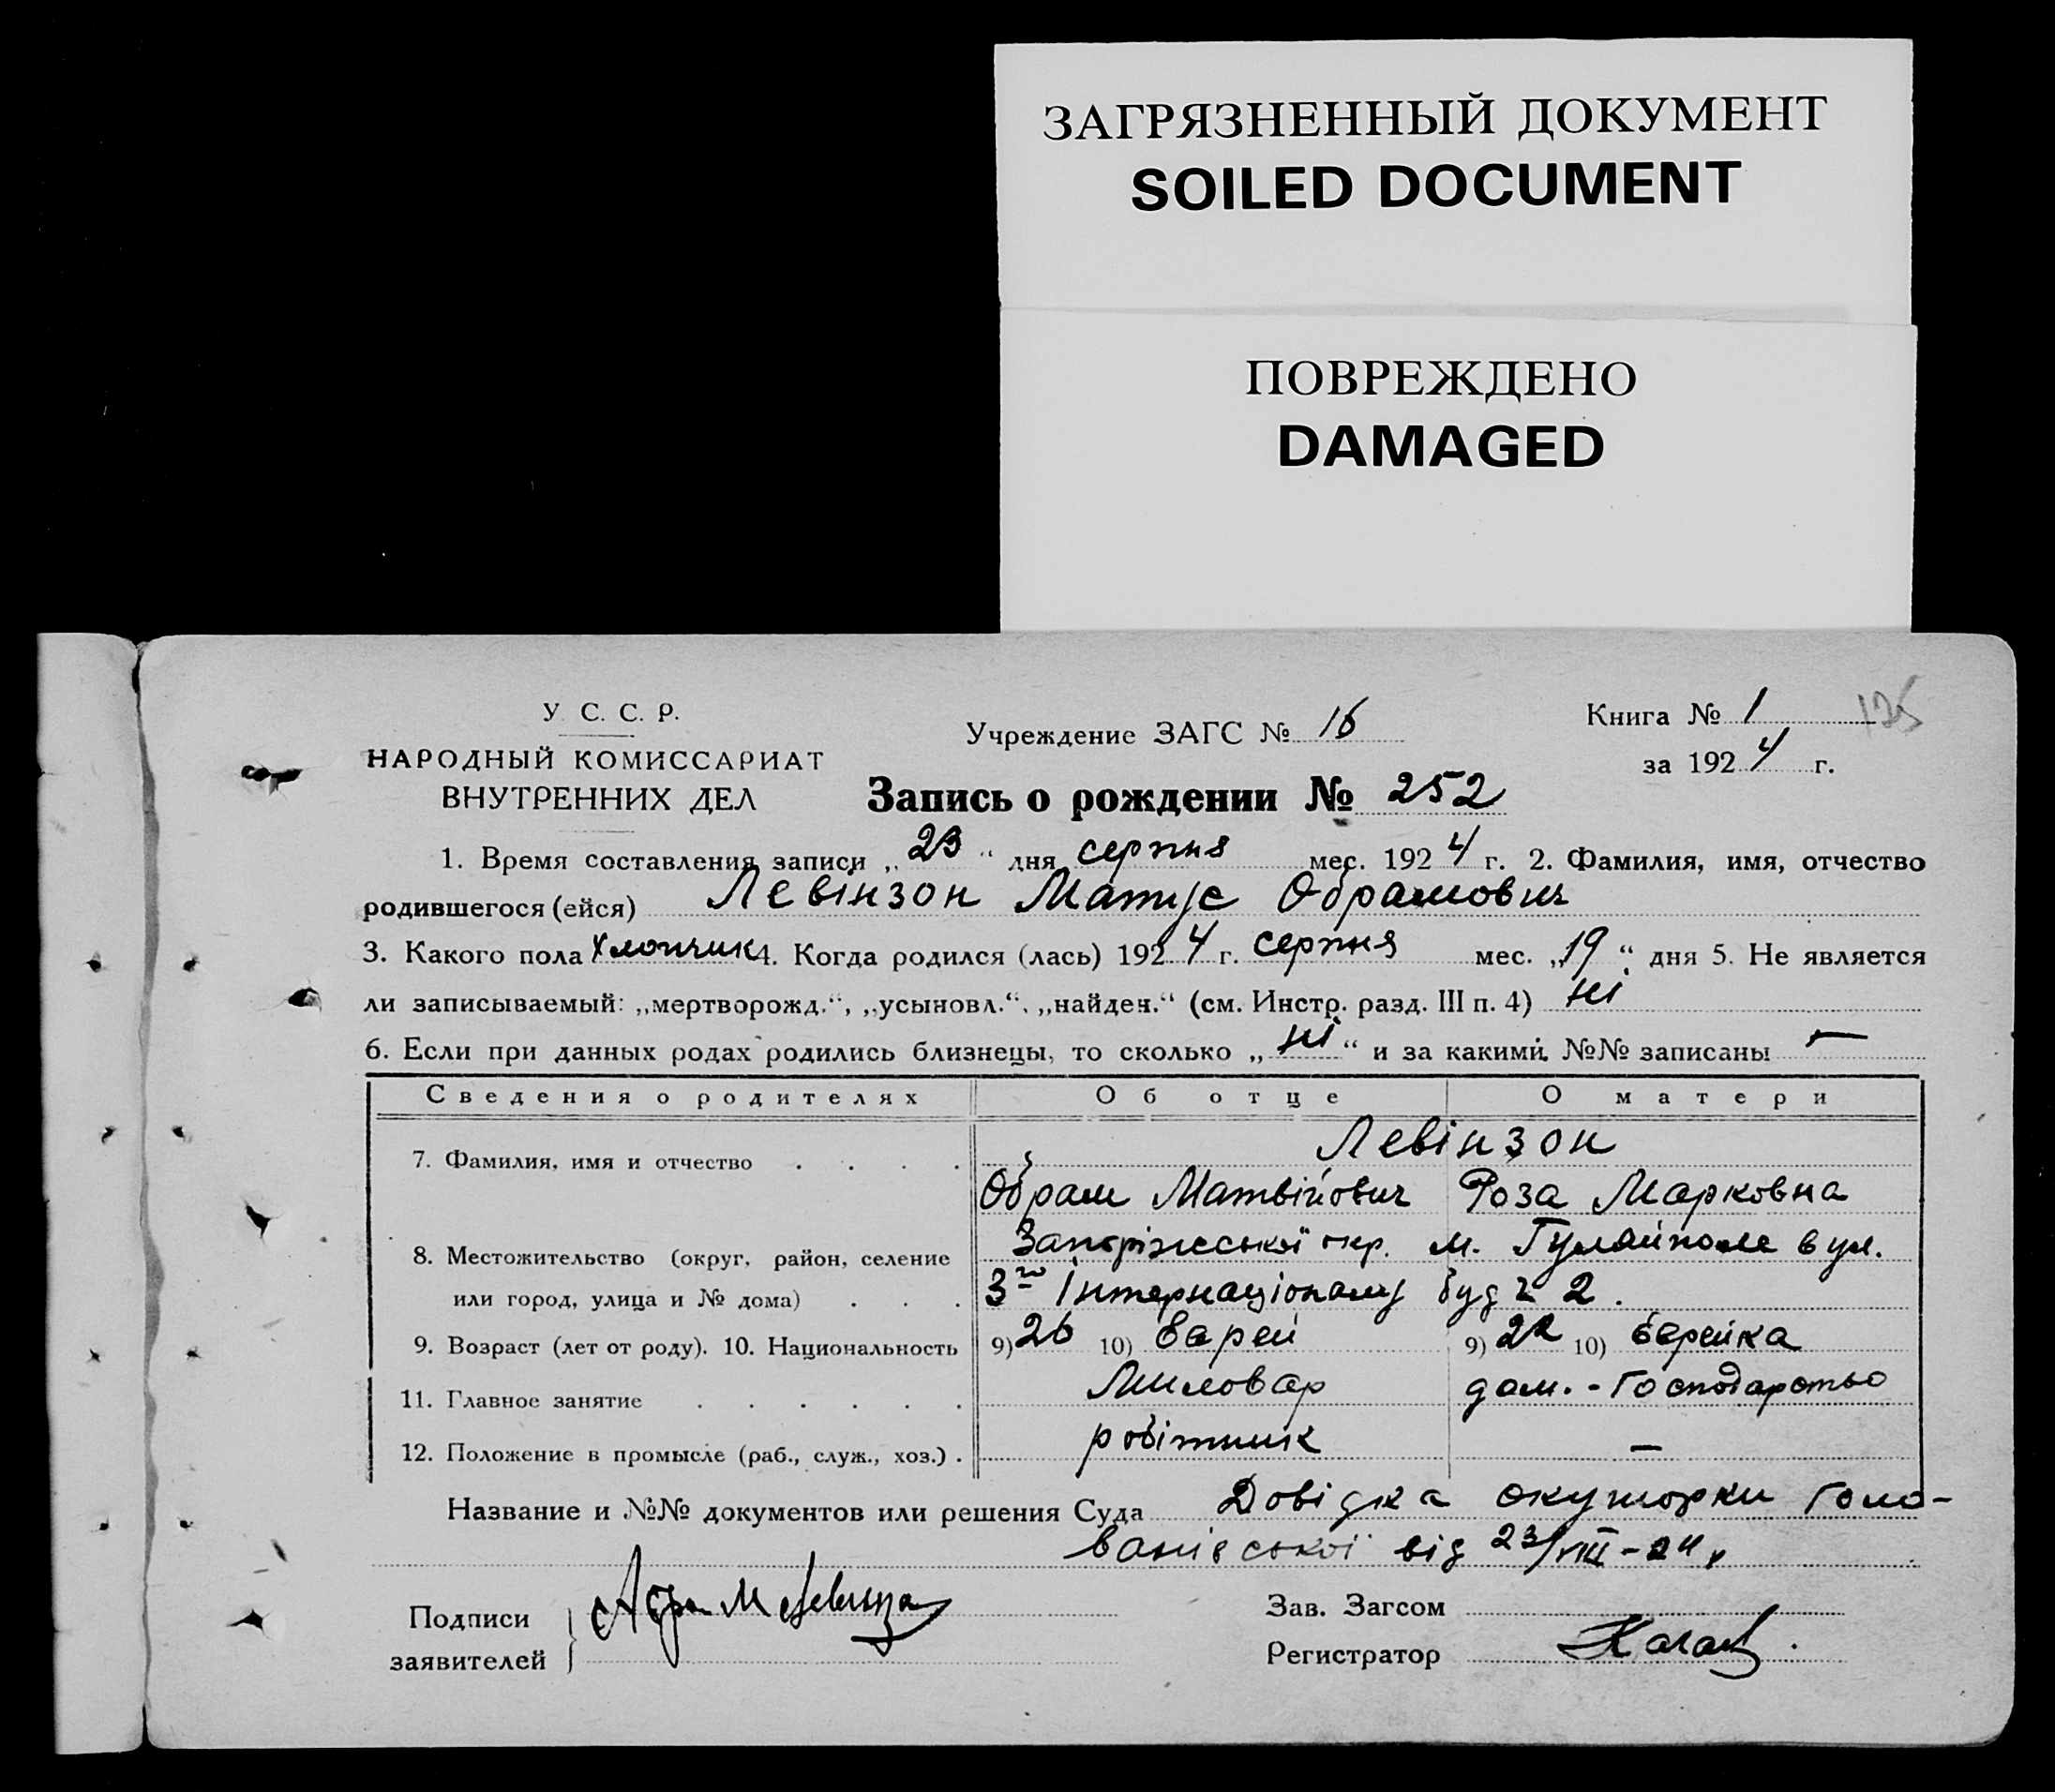 ЗАГРЯЗНЕННЫЙ ДОКУМЕНТ
SOILED DOCUMENT
ПОВРЕЖДЕНО
DAMAGED
У. С. С. Р.
НАРОДНЫЙ КОМИССАРИАТ
ВНУТРЕННИХ ДЕЛ
Учреждение ЗАГС № 16
Книга № 1
за 1924 г.
Запись о рождении № 252
1. Время составления записи „23“ дня серпня мес. 1924 г. 2. Фамилия, имя, отчество
родившегося (ейся) Левінзон Матус Обрамович
3. Какого пола Хлопчик 4. Когда родился (лась) 1924 г. серпня мес. „19“ дня 5. Не является
ли записываемый: „мертворожд.“, „усыновл.“, „найден.“ (см. Инстр. разд. III п. 4) ні
6. Если при данных родах родились близнецы, то сколько „ні“ и за какими №№ записаны —
Сведения о родителях Об отце О матери
7. Фамилия, имя и отчество . . . . Левінзон
Обрам Матвійович Роза Марковна
8. Местожительство (округ, район, селение Запоріжської окр. м. Гуляйполе вул.
или город, улица и № дома) . . . 3го Інтернаціоналу буд № 2.
9. Возраст (лет от роду). 10. Национальность 9) 26 10) Еврей 9) 22 10) Еврейка
11. Главное занятие . . . . . . Миловар дом.-Господарство
12. Положение в промысле (раб., служ., хоз.) . робітник —
Название и №№ документов или решения Суда Довідка окушорки Голо-
ванівської від 23/VIII-24 р
Подписи
заявителей
Абрам М Левинзон
Зав. Загсом
Регистратор